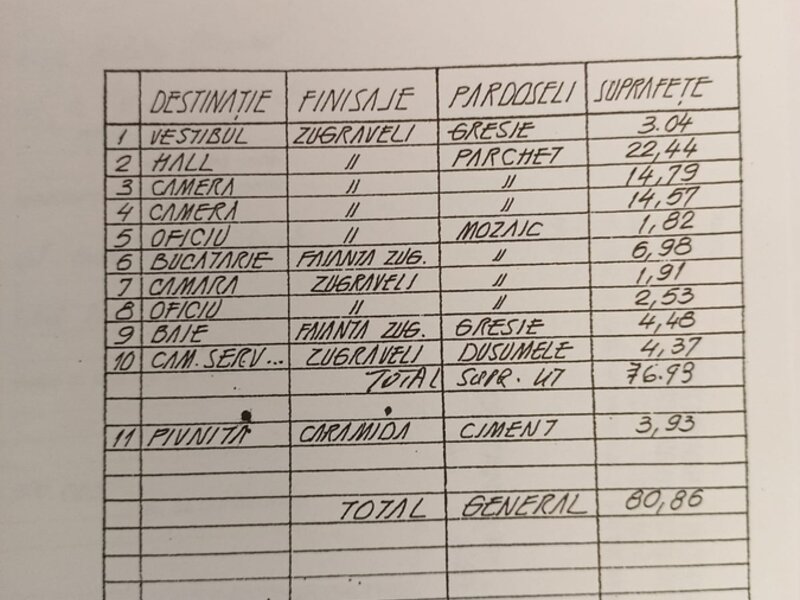 DESTINAȚIE FINISAJE PARDOSELI SUPRAFEȚE
1 VESTIBUL ZUGRAVELI GRESIE 3.04
2 HALL // PARCHET 22,44
3 CAMERA // // 14,79
4 CAMERA // // 14,57
5 OFICIU // MOZAIC 1,82
6 BUCATARIE FAIANTA ZUG. // 6,98
7 CAMARA ZUGRAVELI // 1,91
8 OFICIU // // 2,53
9 BAIE FAIANTA ZUG. GRESIE 4,48
10 CAM. SERV... ZUGRAVELI DUSUMELE 4,37
TOTAL SUPR. UT 76.93
11 PIVNITA CARAMIDA CIMENT 3,93
TOTAL GENERAL 80,86